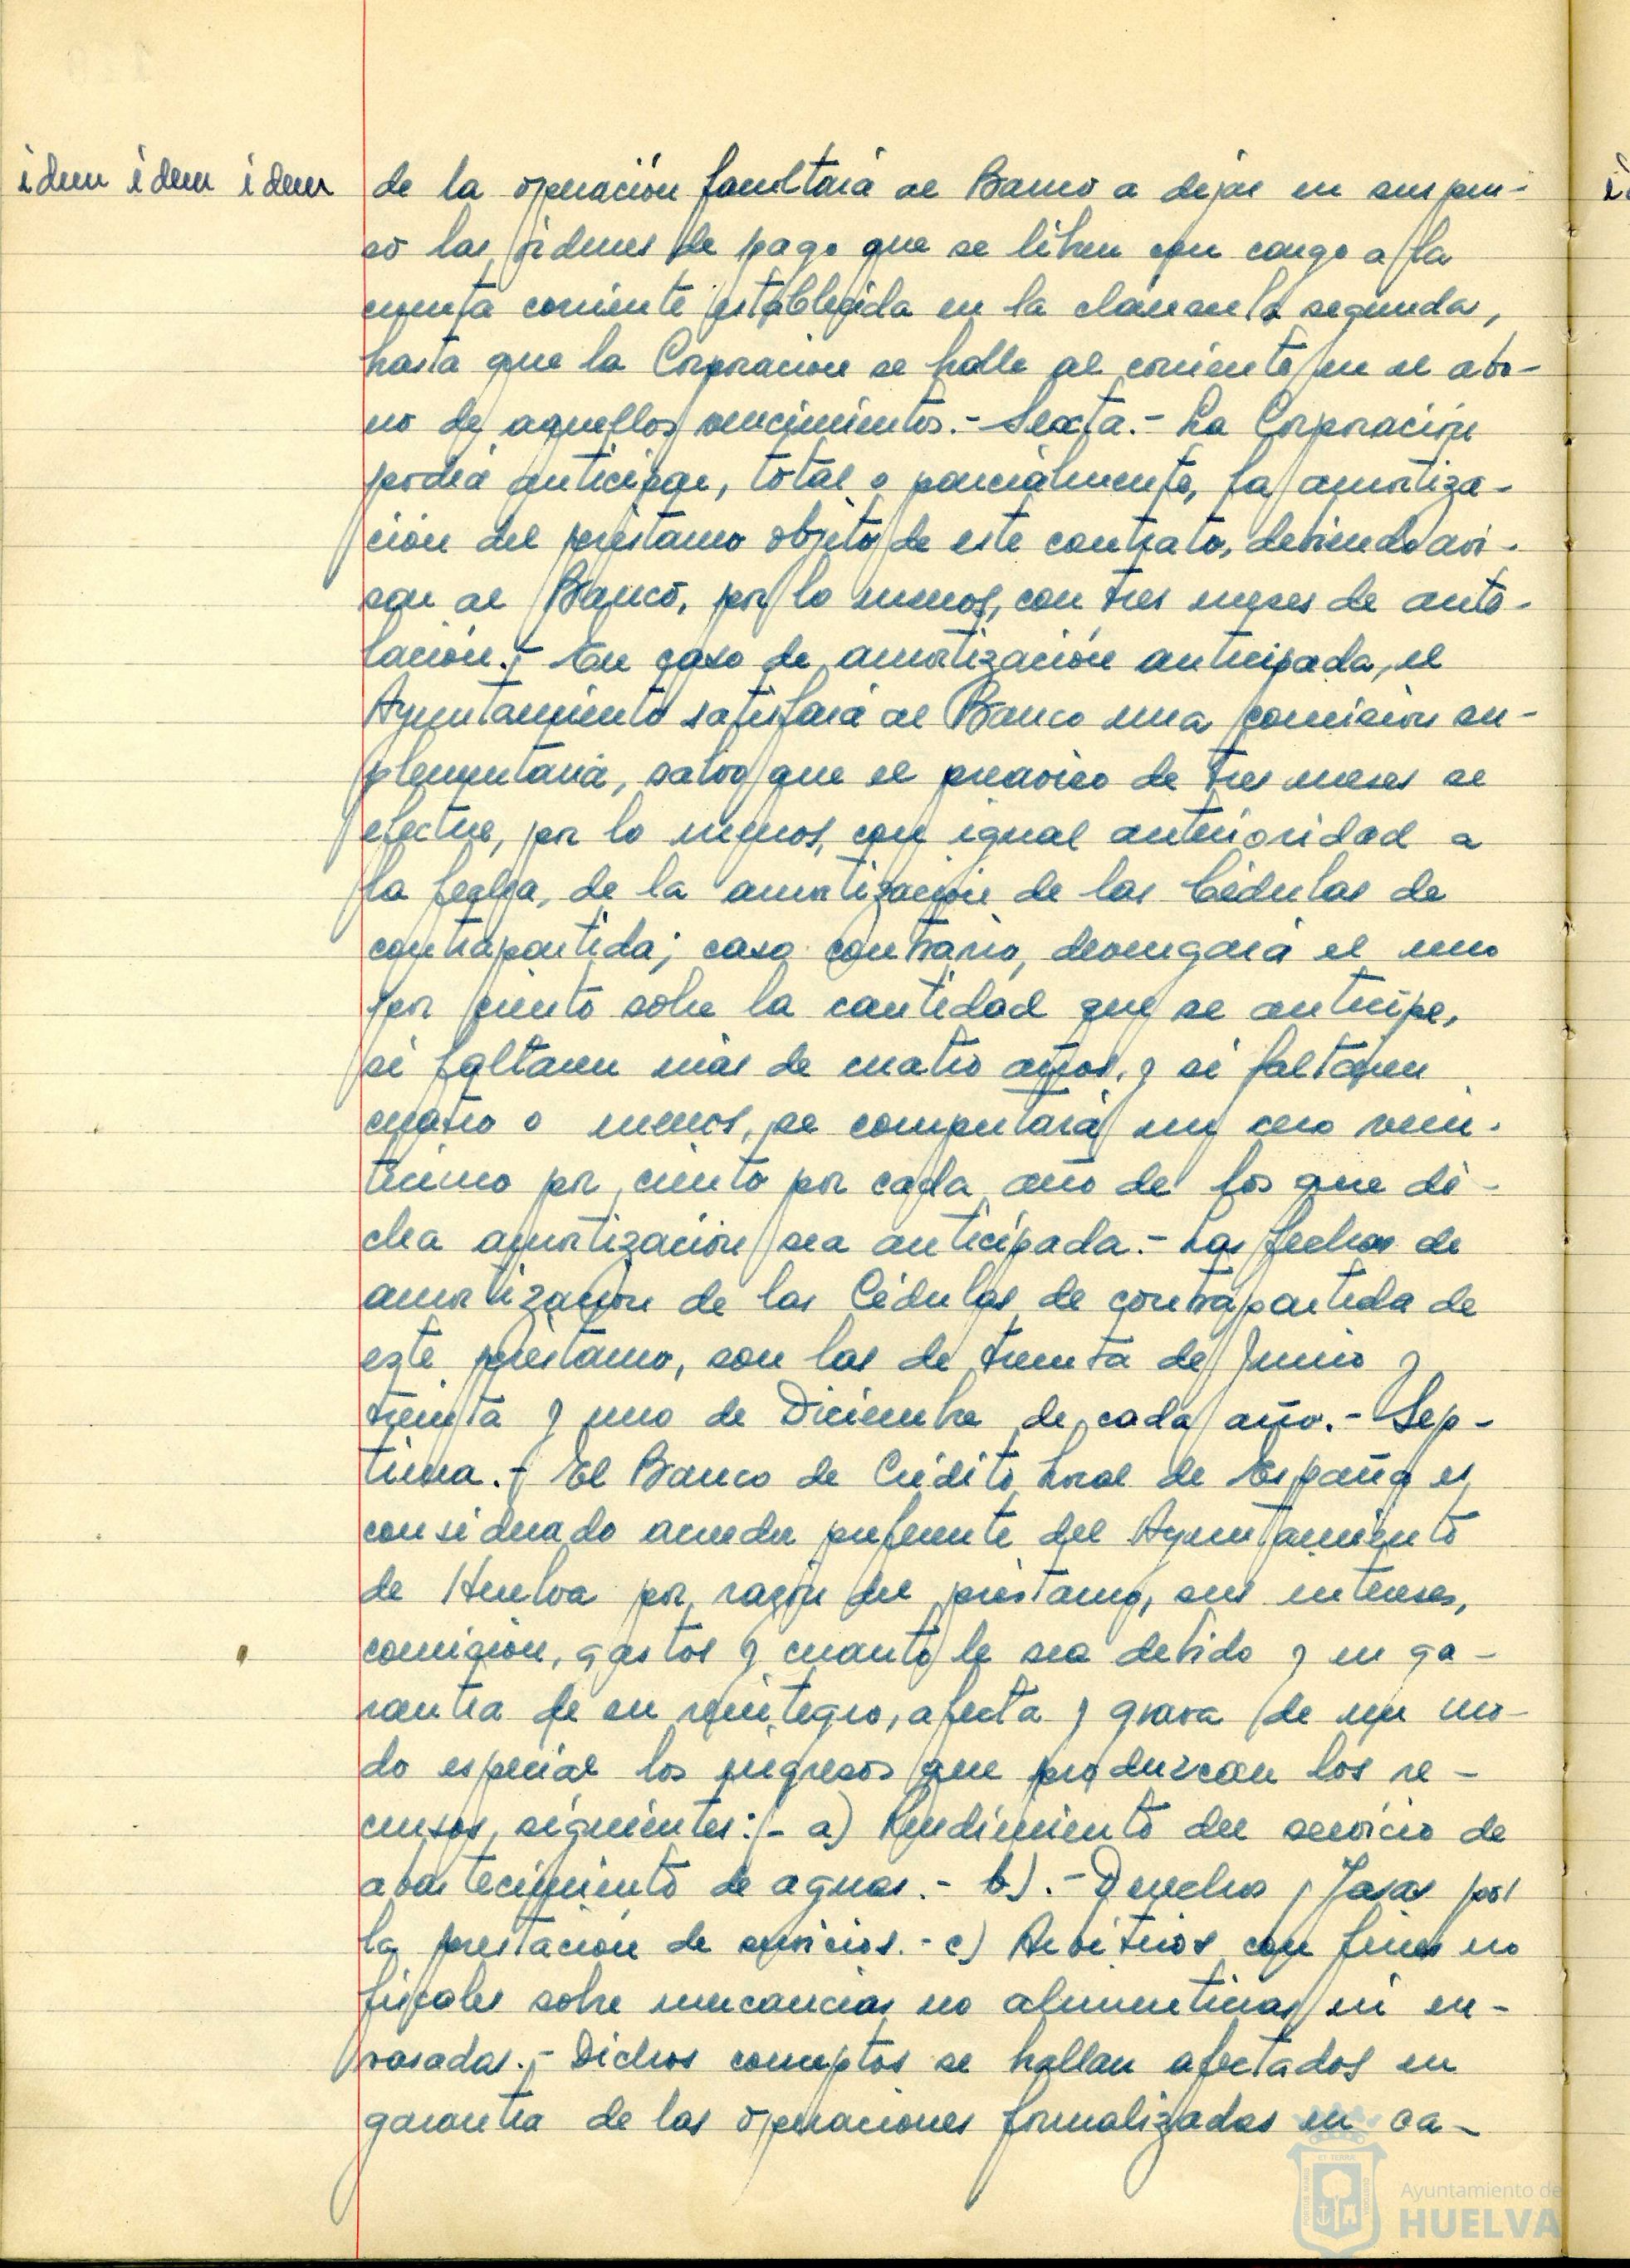 idem idem idem
de la operación facultará al Banco a dejar en suspen-
so las órdenes de pago que se libren con cargo a la
cuenta corriente establecida en la cláusula segunda,
hasta que la Corporación se halle al corriente en el abo-
no de aquellos vencimientos.- Sexta.- La Corporación
podrá anticipar, total o parcialmente, la amortiza-
ción del préstamo objeto de este contrato, debiendo avi-
sar al Banco, por lo menos, con tres meses de ante-
lación.- En caso de amortización anticipada, el
Ayuntamiento satisfará al Banco una comisión su-
plementaria, salvo que el preaviso de tres meses se
efectúe, por lo menos, con igual anterioridad a
la fecha, de la amortización de las Cédulas de
contrapartida; caso contrario, devengará el uno
por ciento sobre la cantidad que se anticipe,
si faltaren más de cuatro años, y si faltaren
cuatro o menos, se computará un cero vein-
ticinco por ciento por cada año de los que di-
cha amortización sea anticipada.- Las fechas de
amortización de las Cédulas de contrapartida de
este préstamo, son las de treinta de Junio y
treinta y uno de Diciembre de cada año.- Sep-
tima.- El Banco de Crédito Local de España es
considerado acreedor preferente del Ayuntamiento
de Huelva por razón del préstamo, sus intereses,
comisión, gastos y cuanto le sea debido y en ga-
rantia de su reintegro, afecta y grava de un mo-
do especial los ingresos que produzcan los re-
cursos siguientes:- a) Rendimiento del servicio de
abastecimiento de aguas.- b).- Derechos y Tasas por
la prestación de servicios.- c) Arbitrios con fines no
fiscales sobre mercancias no alimenticias ni en-
vasadas.- Dichos conceptos se hallan afectados en
garantia de las operaciones formalizadas en ca-
Ayuntamiento de
HUELVA